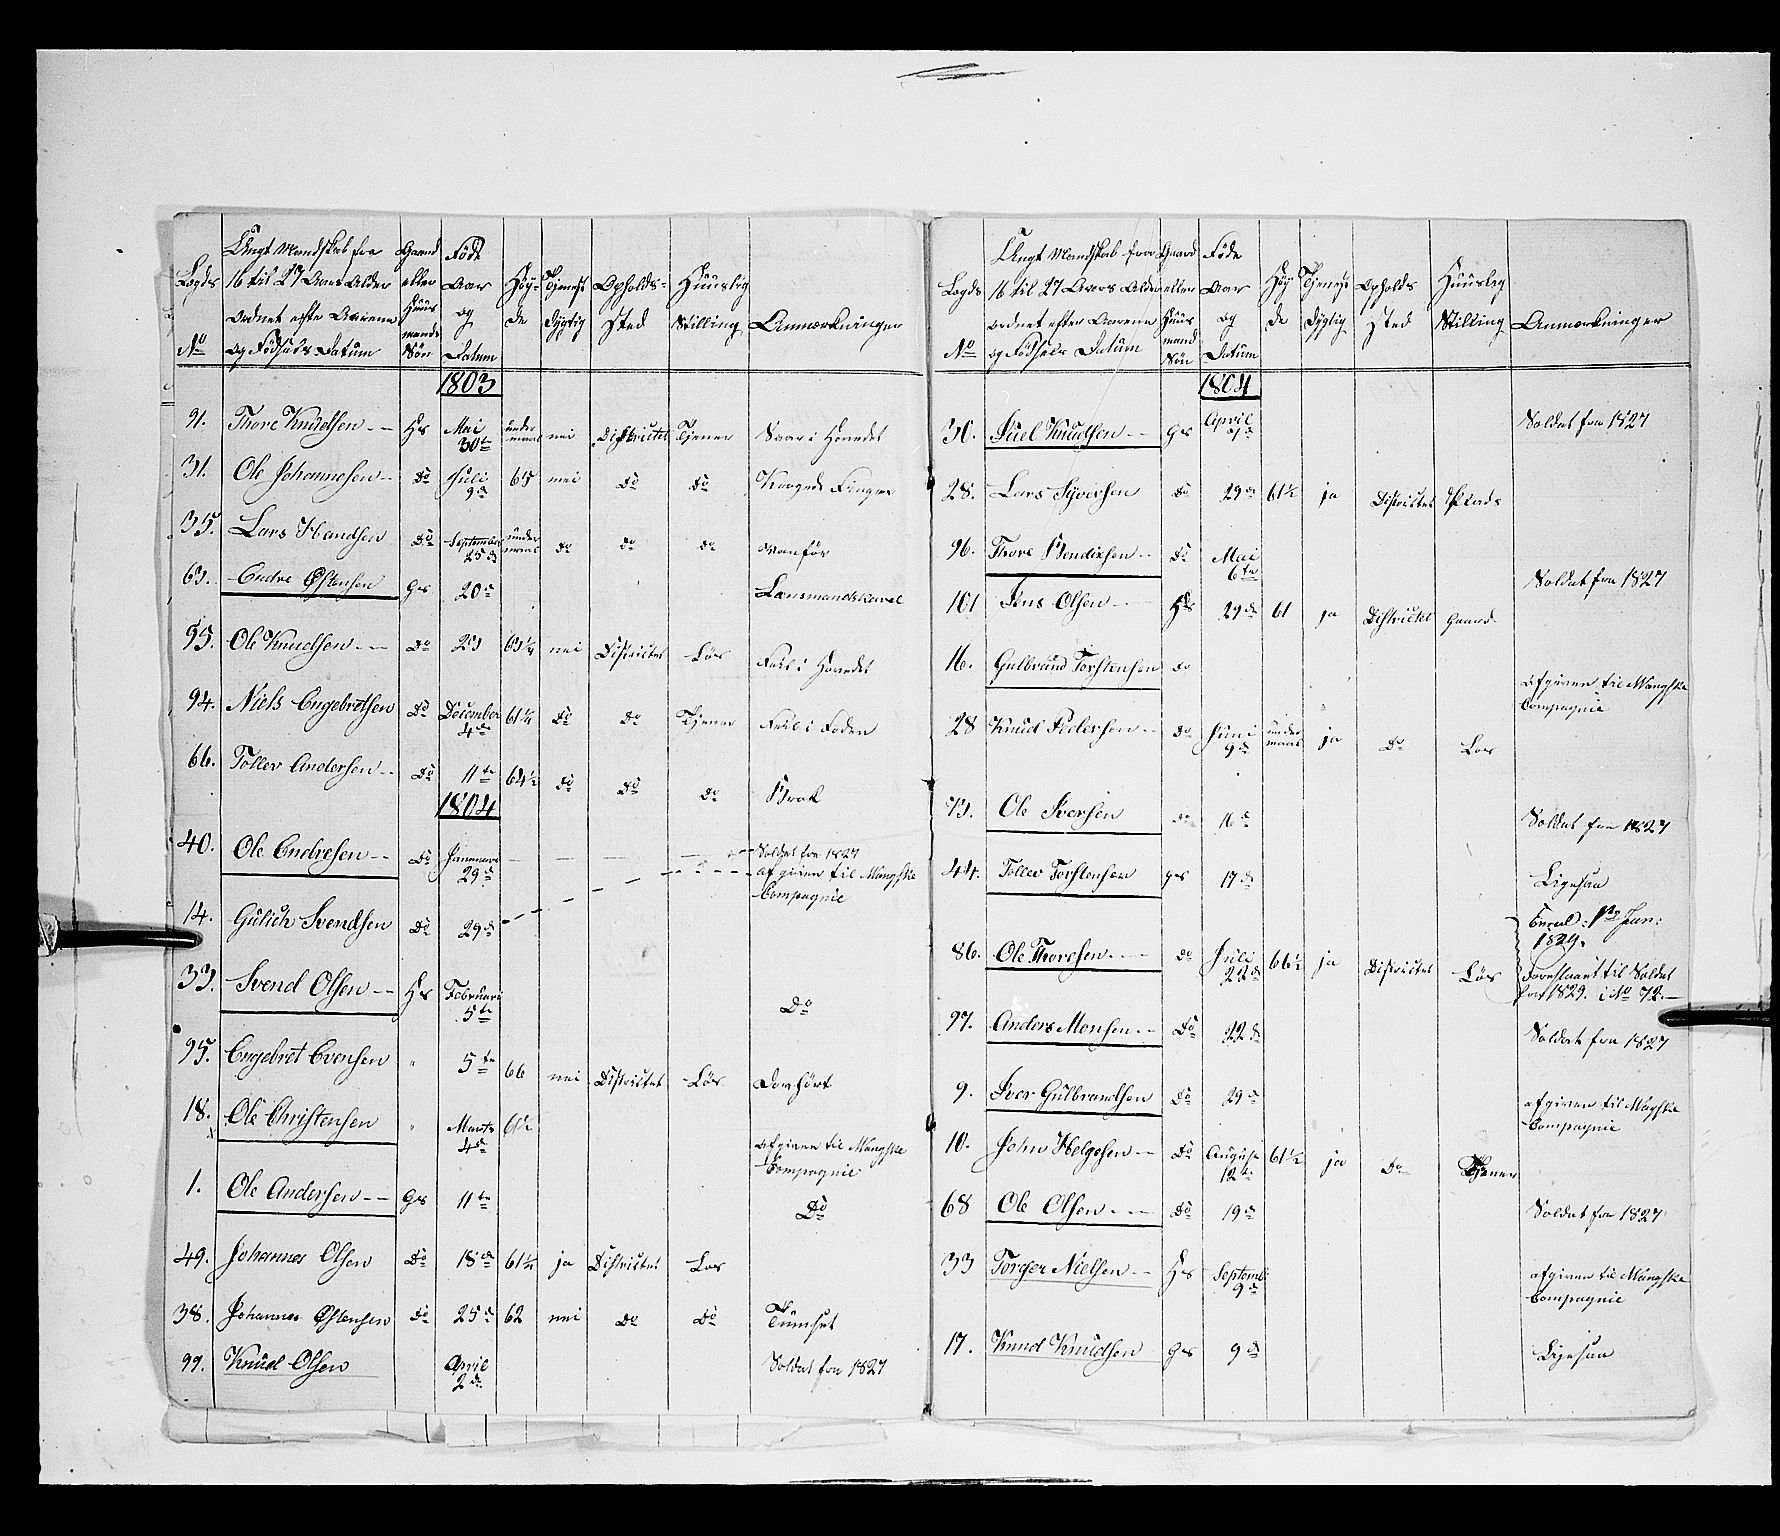 Lægds No | Ungt Mandskab fra 16 til 27 Aars Alder ordnet efter Aarene og Fødsels Datum | Gaard eller Huus mands Søn | Føde Aar og Datum | Høy-de | Tjeneste dygtig | Opholds-sted | Huuslig Stilling | Anmærkninger
1803
91. Thore Knudsen Hs Mai 30te under maal nei Districtet Tjener Saar i Hovedet
31. Ole Johannesen do Juli 9de 65 nei do do Kroget Finger
35. Lars Hansen do September 25de under maal do do do vanfør
63. Endre Østensen Gs 20de Lensmandskarl
95. Ole Knudsen do 23 63½ nei Districtet Løs Feil i Hovedet
94. Niels Engebretsen do December 4de 61¼ do do Tjener Feil i Foden
66. Tollev Andersen do 11te 64½ do do do Brok
1804
40. Ole Endresen do Januari 29de Soldat fra 1827
14. Gulich Svendsen do 29de afgiven til Mangske Compagnie
33. Svend Olsen Hs Februari 5te Do
95. Engebret Evensen " 5te 66 nei Districtet Løs
18. Ole Christensen " Marts 4de 61½ afgiven til Mangske Compagnie
1. Ole Andersen Gs 11te Do
49. Johannes Olsen do 18de 61¼ ja Districtet Løs
38. Johannes Østensen do 25de 62 nei do do Tumset
99. Knud Olsen April 2de Soldat fra 1827
Lægds No | Ungt Mandskab fra 16 til 27 Aars Alder ordnet efter Aarene og Fødsels Datum | Gaard eller Huus mand Søn | Føde Aar og Datum | Høy de | Tjeneste dygtig | Opholds sted | Huuslig Stilling | Anmærkninger
1804
30. Juel Knudsen Gs April Soldat fra 1827
28. Lars Syversen do 29de 61½ ja Districtet Plads
96. Thore Bendixsen do Mai 6te Soldat fra 1827
101 Jens Olsen Hs 29de 61 ja Districtet Gaard
16. Gulbrand Torstensen do afgiven til Mangske Compagnie
28 Knud Pedersen do Juni 9de under maal ja do Løs
73. Ole Iversen do 16de Soldat fra 1827
44. Tollev Torstensen Gs 17de Ligesaa
86. Ole Thoresen do Juli 22de 66½ ja Districtet Løs Jan: 1829. Foreslaaet til Soldat fra 1829. i No 72.
97. Anders Monsen do 22de Soldat fra 1827
9. Iver Gulbrandsen do 29de afgiven til Mangske Compagnie
10. John Helgesen do August 12te 61½ ja do Tjener
68 Ole Olsen do 19de Soldat fra 1827
33 Torger Nielsen Hs Septemb 9de afgiven til Mangske Compagnie
17. Knud Knudsen Gs 9de Ligesaa